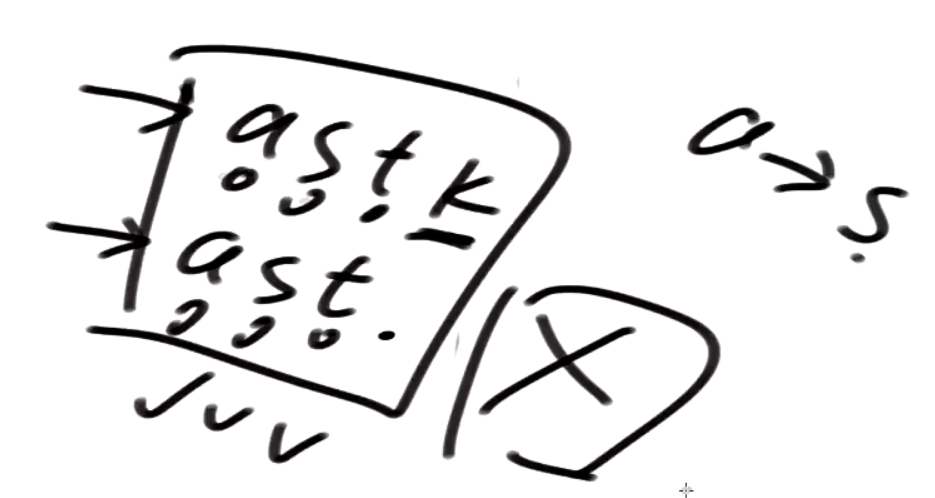 a s t k
a s t .
X
a → s